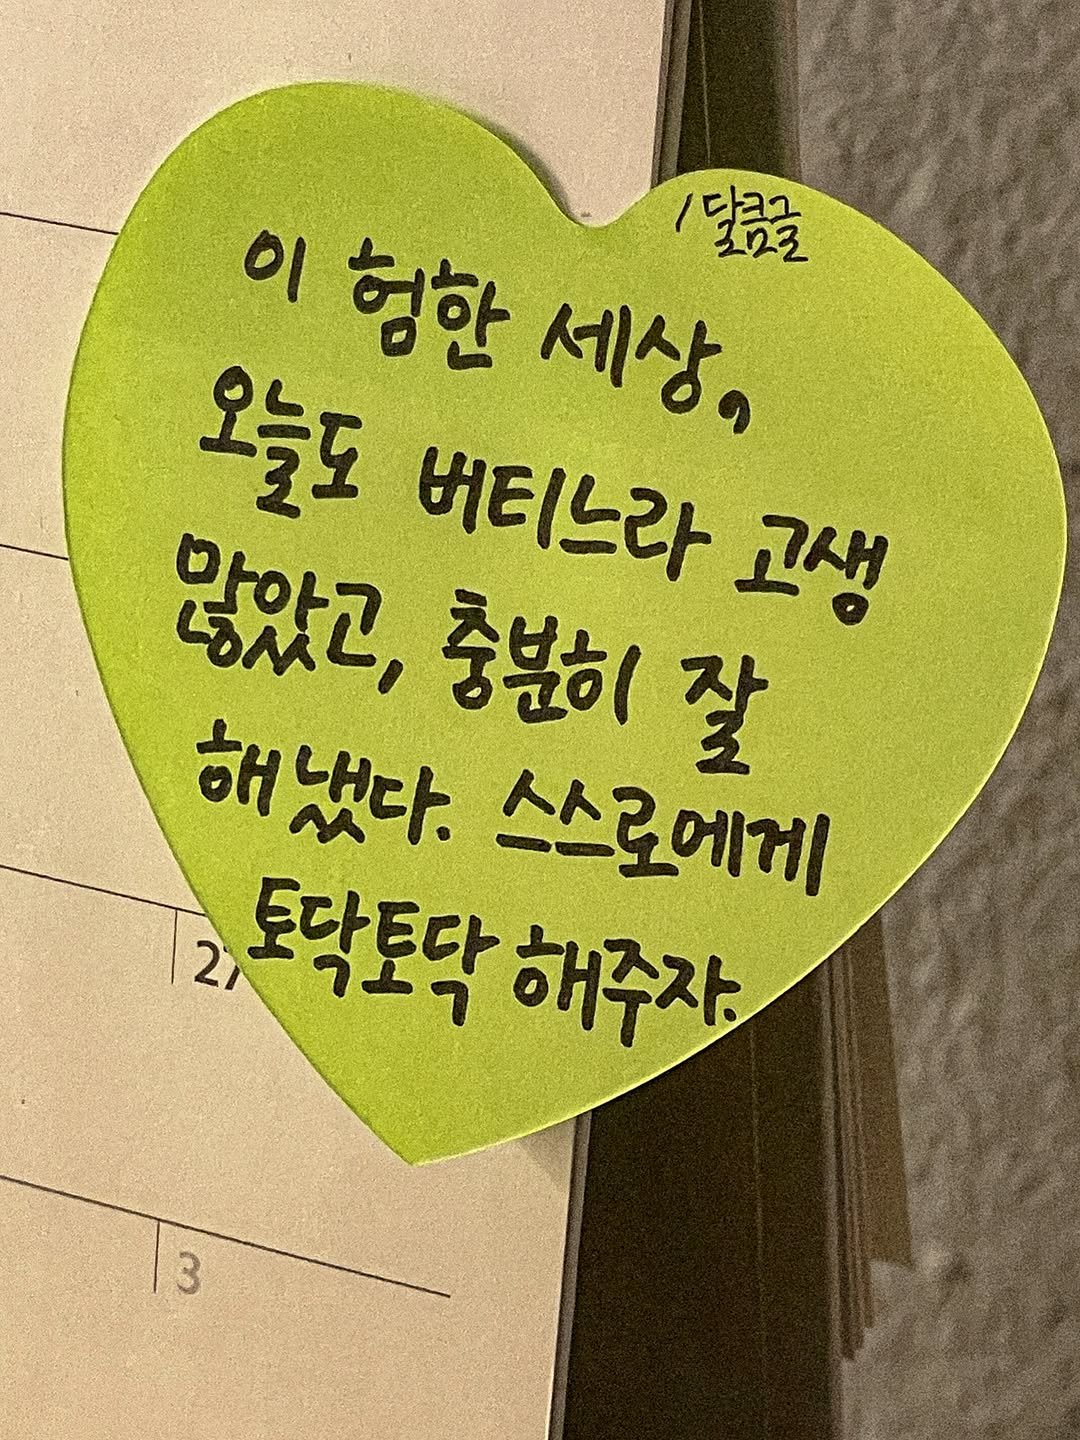 /달콤글
이 험한 세상,
오늘도 버티느라 고생
많았고, 충분히 잘
해냈다. 스스로에게
토닥토닥 해주자.
27
3